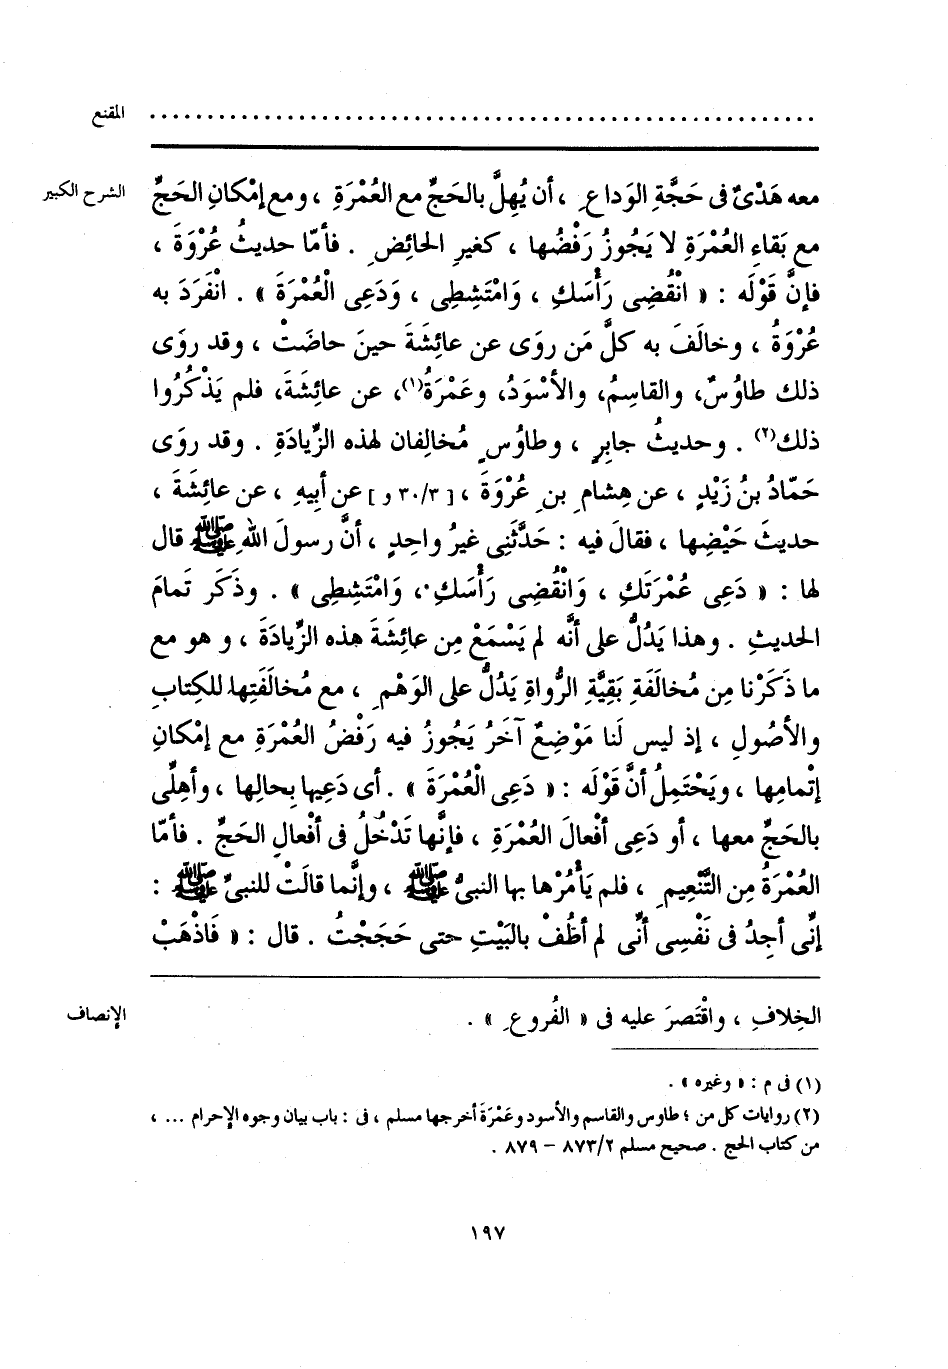 المقنع ........................................................
الشرح الكبير
معه هَدْىٌ فى حَجَّةِ الوَداعِ ، أن يُهِلَّ بالحَجِّ مع العُمْرَةِ ، ومع إمْكانِ الحَجِّ
مع بَقاءِ العُمْرَةِ لا يَجُوزُ رَفْضُها ، كغيرِ الحائِضِ . فأمّا حديثُ عُرْوَةَ ،
فإنَّ قَوْلَه : « انْقُضِى رَأْسَكِ ، وَامْتَشِطِى ، وَدَعِى الْعُمْرَةَ » . انْفَرَدَ به
عُرْوَةُ ، وخالَفَ به كلَّ مَن روَى عن عائِشَةَ حينَ حاضَتْ ، وقد روَى
ذلك طاوُسٌ، والقاسِمُ، والأسْوَدُ، وعَمْرَةُ(١)، عن عائِشَةَ، فلم يَذْكُرُوا
ذلك(٢) . وحديثُ جابِرٍ ، وطاوُسٍ مُخالِفان لهذه الزِّيادَةِ . وقد روَى
حَمّادُ بنُ زَيْدٍ ، عن هِشامِ بنِ عُرْوَةَ ، [ ٣٠/٣ و ] عن أبيهِ ، عن عائِشَةَ ،
حديثَ حَيْضِها ، فقالَ فيه : حَدَّثَنِى غيرُ واحِدٍ ، أنَّ رسولَ اللهِ ﷺ قال
لها : « دَعِى عُمْرَتَكِ ، وَانْقُضِى رَأْسَكِ ، وَامْتَشِطِى » . وذَكَر تَمامَ
الحديثِ . وهذا يَدُلُّ على أنَّه لم يَسْمَعْ مِن عائِشَةَ هذه الزِّيادَةَ ، وهو مع
ما ذَكَرْنا مِن مُخالَفَةِ بَقِيَّةِ الرُّواةِ يَدُلُّ على الوَهْمِ ، مع مُخالَفَتِها للكِتابِ
والأصُولِ ، إذ ليس لَنا مَوْضِعٌ آخَرُ يَجُوزُ فيه رَفْضُ العُمْرَةِ مع إمْكانِ
إتْمامِها ، ويَحْتَمِلُ أنَّ قَوْلَه : « دَعِى الْعُمْرَةَ » . أى دَعِيها بِحالِها ، وأهِلِّى
بالحَجِّ معها ، أو دَعِى أفْعالَ العُمْرَةِ ، فإنَّها تَدْخُلُ فى أفْعالِ الحَجِّ . فأمّا
العُمْرَةُ مِن التَّنْعِيمِ ، فلم يَأْمُرْها بها النبىُّ ﷺ ، وإنَّما قالَتْ للنبىِّ ﷺ :
إنِّى أجِدُ فى نَفْسِى أنِّى لم أطُفْ بالبَيْتِ حتى حَجَجْتُ . قال : « فَاذْهَبْ
الإنصاف
الخِلافِ ، واقْتَصرَ عليه فى « الفُروعِ » .
(١) فى م : « وغيره » .
(٢) روايات كل من ؛ طاوس والقاسم والأسود وعَمْرَةَ أخرجها مسلم ، فى : باب بيان وجوه الإحرام ... ،
من كتاب الحج . صحيح مسلم ٨٧٣/٢ – ٨٧٩ .
١٩٧